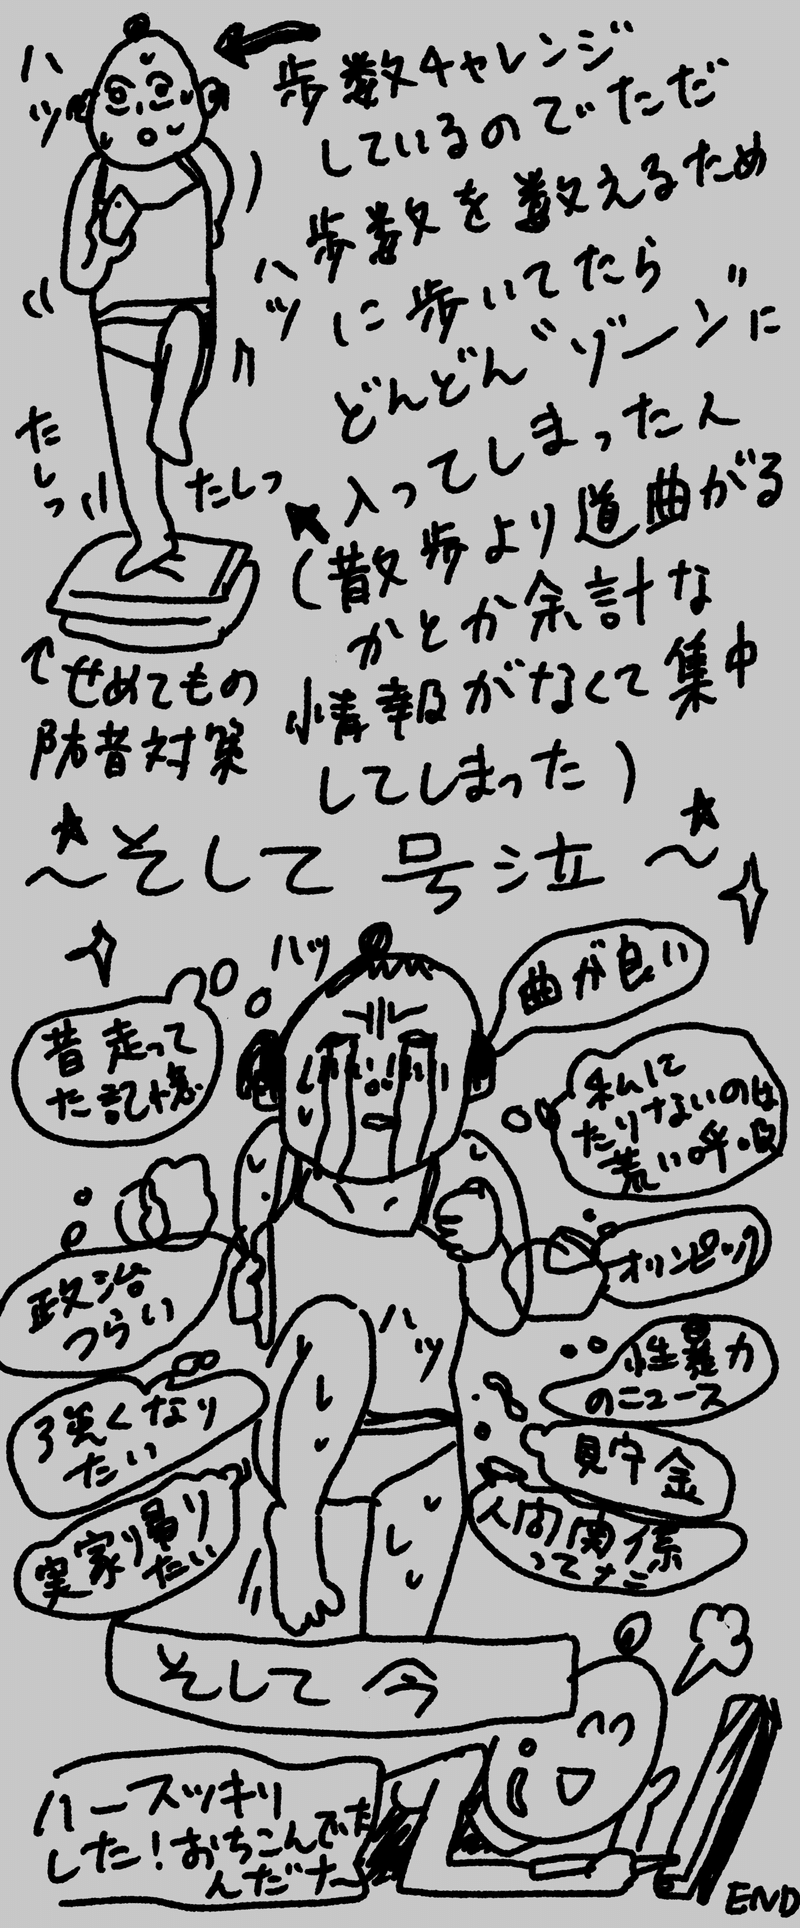 ハッ
歩数チャレンジ
しているのでただ
歩数を数えるため
に歩いてたら
どんどん"ゾーン"に
入ってしまった人
(散歩より道曲がる
かとか余計な
情報がなくて集中
してしまった)
ハッ
たしっ
たしっ
せめてもの
防音対策
〜そして 号泣〜
ハッ
曲が良い
昔走って
た記憶
私に
たりないのは
荒い呼吸
政治
つらい
オリンピック
ハッ
性暴力
のニュース
強くなり
たい
見守金
実家帰り
たい
人間関係
ってナニ
そして今
ハースッキリ
した!おちこんでた
んだナ〜
END